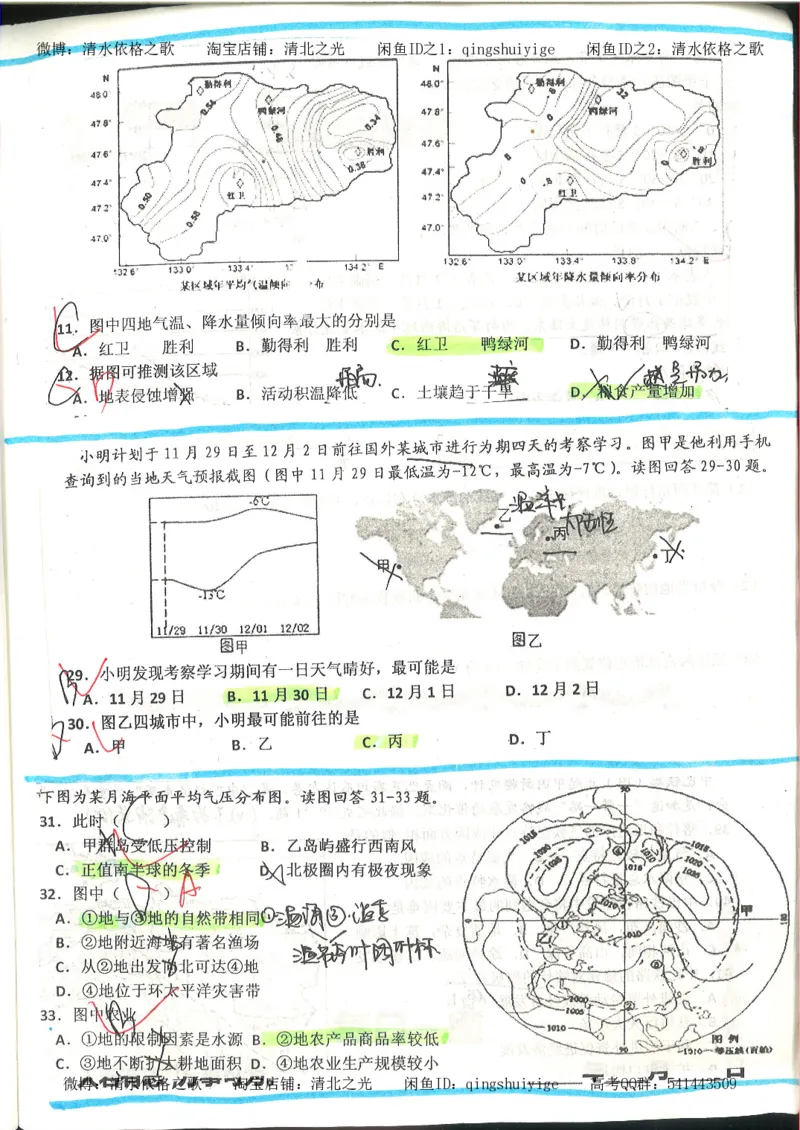 微博：清水依格之歌 淘宝店铺：清北之光 闲鱼ID之1：qingshuiyige 闲鱼ID之2：清水依格之歌
N
48.0°
47.8°
47.6°
47.4°
47.2°
47.0°
勤得利
0.54
鸭绿河
0.46
0.34
胜利
0.38
红卫
0.50
0.58
132.6°
133.0°
133.4°
134.2° E
某区域年平均气温倾向 布
N
48.0°
47.8°
47.6°
47.4°
47.2°
47.0°
勤得利
8
12
鸭绿河
0
8
0
-8
-8
0
胜利
红卫
132.6°
133.0°
133.4°
133.8°
134.2° E
某区域年降水量倾向率分布
11．图中四地气温、降水量倾向率最大的分别是
A．红卫 胜利 B．勤得利 胜利 C．红卫 鸭绿河 D．勤得利 鸭绿河
12．据图可推测该区域
A．地表侵蚀增强 B．活动积温降低 C．土壤趋于干旱 D．粮食产量增加
小明计划于11月29日至12月2日前往国外某城市进行为期四天的考察学习。图甲是他利用手机
查询到的当地天气预报截图（图中11月29日最低温为-12℃，最高温为-7℃）。读图回答29-30题。
-6℃
-13℃
11/29 11/30 12/01 12/02
图甲
温带
乙
丙
甲
丁
图乙
29．小明发现考察学习期间有一日天气晴好，最可能是
A．11月29日 B．11月30日 C．12月1日 D．12月2日
30．图乙四城市中，小明最可能前往的是
A．甲 B．乙 C．丙 D．丁
下图为某月海平面平均气压分布图。读图回答31-33题。
31．此时（ ）
A．甲群岛受低压控制 B．乙岛屿盛行西南风
C．正值南半球的冬季 D．北极圈内有极夜现象
32．图中（ ）
A
A．①地与③地的自然带相同
B．②地附近海域有著名渔场
C．从②地出发向北可达④地
D．④地位于环太平洋灾害带
33．图中农业
A．①地的限制因素是水源 B．②地农产品商品率较低
C．③地不断扩大耕地面积 D．④地农业生产规模较小
90
1015
1020
1025
1010
1015
1015
1020
1025
1010
1010
甲
180
乙
1000
1005
1010
90
图 例
—1010— 等压线(百帕)
微博：清水依格之歌 淘宝店铺：清北之光 闲鱼ID：qingshuiyige 高考QQ群：541443509